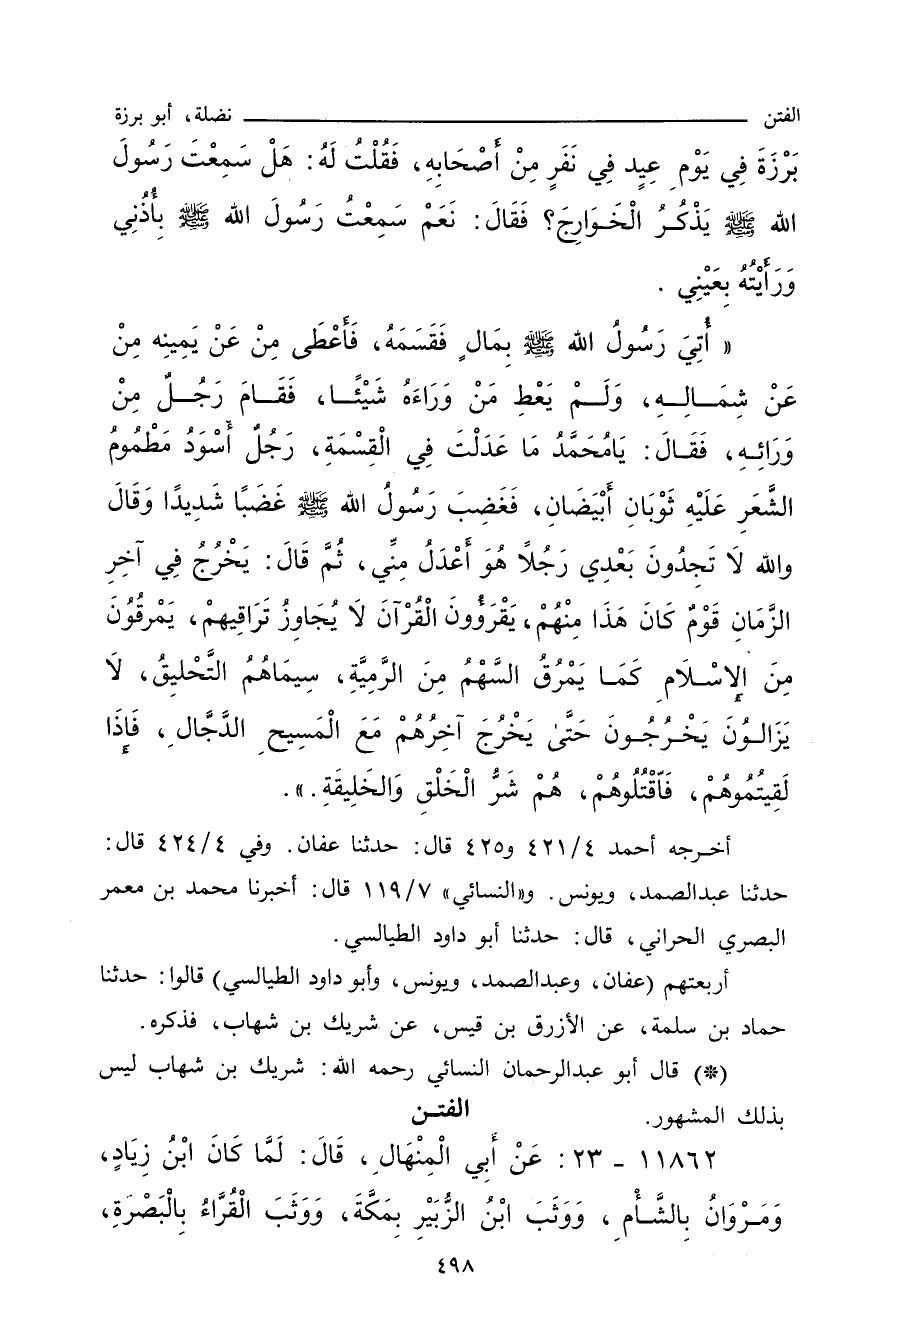 الفتن ــــــــــ نضلة، أبو برزة
بَرْزَةَ فِي يَوْمِ عِيدٍ فِي نَفَرٍ مِنْ أَصْحَابِهِ، فَقُلْتُ لَهُ: هَلْ سَمِعْتَ رَسُولَ
الله ﷺ يَذْكُرُ الْخَوارِجَ؟ فَقَالَ: نَعَمْ سَمِعْتُ رَسُولَ الله ﷺ بِأُذُنِي
وَرَأَيْتُهُ بِعَيْنِي .
« أُتِيَ رَسُولُ الله ﷺ بِمَالٍ فَقَسَمَهُ، فَأَعْطَى مِنْ عَنْ يَمِينِه مِنْ
عَنْ شِمَالِهِ، وَلَمْ يَعْطِ مَنْ وَرَاءَهُ شَيْئًا، فَقَامَ رَجُلٌ مِنْ
وَرَائِهِ، فَقَالَ: يَامُحَمَّدُ مَا عَدَلْتَ فِي الْقِسْمَةِ، رَجُلٌ أَسْوَدُ مَطْمُومُ
الشَّعَرِ عَلَيْهِ ثَوْبَانِ أَبْيَضَانِ، فَغَضِبَ رَسُولُ الله ﷺ غَضَبًا شَدِيدًا وَقَالَ
والله لَا تَجِدُونَ بَعْدِي رَجُلًا هُوَ أَعْدَلُ مِنِّي، ثُمَّ قَالَ: يَخْرُجُ فِي آخِرِ
الزَّمَانِ قَوْمٌ كَانَ هَذَا مِنْهُمْ، يَقْرَؤُونَ الْقُرْآنَ لَا يُجَاوِزُ تَرَاقِيهِمْ، يَمْرقُونَ
مِنَ الإِسْلَامِ كَمَا يَمْرُقُ السَّهْمُ مِنَ الرَّمِيَّةِ، سِيمَاهُمُ التَّحْلِيقُ، لَا
يَزَالُونَ يَخْرُجُونَ حَتَّىٰ يَخْرُجَ آخِرُهُمْ مَعَ الْمَسِيحِ الدَّجَّالِ، فَإِذَا
لَقِيتُمُوهُمْ، فَاقْتُلُوهُمْ، هُمْ شَرُّ الْخَلْقِ وَالْخَلِيقَةِ.».
أخرجه أحمد ٤٢١/٤ و٤٢٥ قال: حدثنا عفان. وفي ٤٢٤/٤ قال:
حدثنا عبدالصمد، ويونس. و«النسائي» ١١٩/٧ قال: أخبرنا محمد بن معمر
البصري الحراني، قال: حدثنا أبو داود الطيالسي.
أربعتهم (عفان، وعبدالصمد، ويونس، وأبو داود الطيالسي) قالوا: حدثنا
حماد بن سلمة، عن الأزرق بن قيس، عن شريك بن شهاب، فذكره.
(*) قال أبو عبدالرحمان النسائي رحمه الله: شريك بن شهاب ليس
بذلك المشهور.
الفتن
١١٨٦٢ - ٢٣: عَنْ أَبِي الْمِنْهَالِ، قَالَ: لَمَّا كَانَ ابْنُ زِيَادٍ،
وَمَرْوَانُ بِالشَّأْمِ، وَوَثَبَ ابْنُ الزُّبَيْرِ بِمَكَّةَ، وَوَثَبَ الْقُرَّاءُ بِالْبَصْرَةِ،
٤٩٨